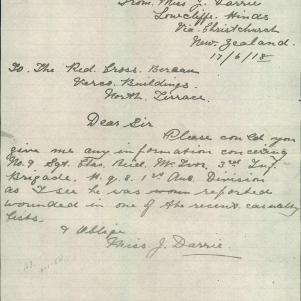 From Miss J Darrie
Lowcliffe Hinds
Via Christchurch
New Zealand.
17/6/18
To The Red Cross Bereau
Verco Buildings
North Terrace.
Dear Sir
Please could you
give me any information concering
No. 9 Sgt. Chas. Reid. McIvor, 3rd Inf.
Brigade. H.q.s. 1st Aus. Division
as I see he was reported
wounded in one of the recent casualty
lists.
& Oblige
Miss. J. Darrie.